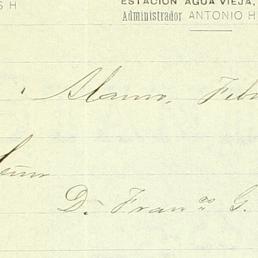 S H ESTACIÓN AGUA VIEJA,
Administrador ANTONIO H
Alamo, Feb
Señor
D. Fran.co G.